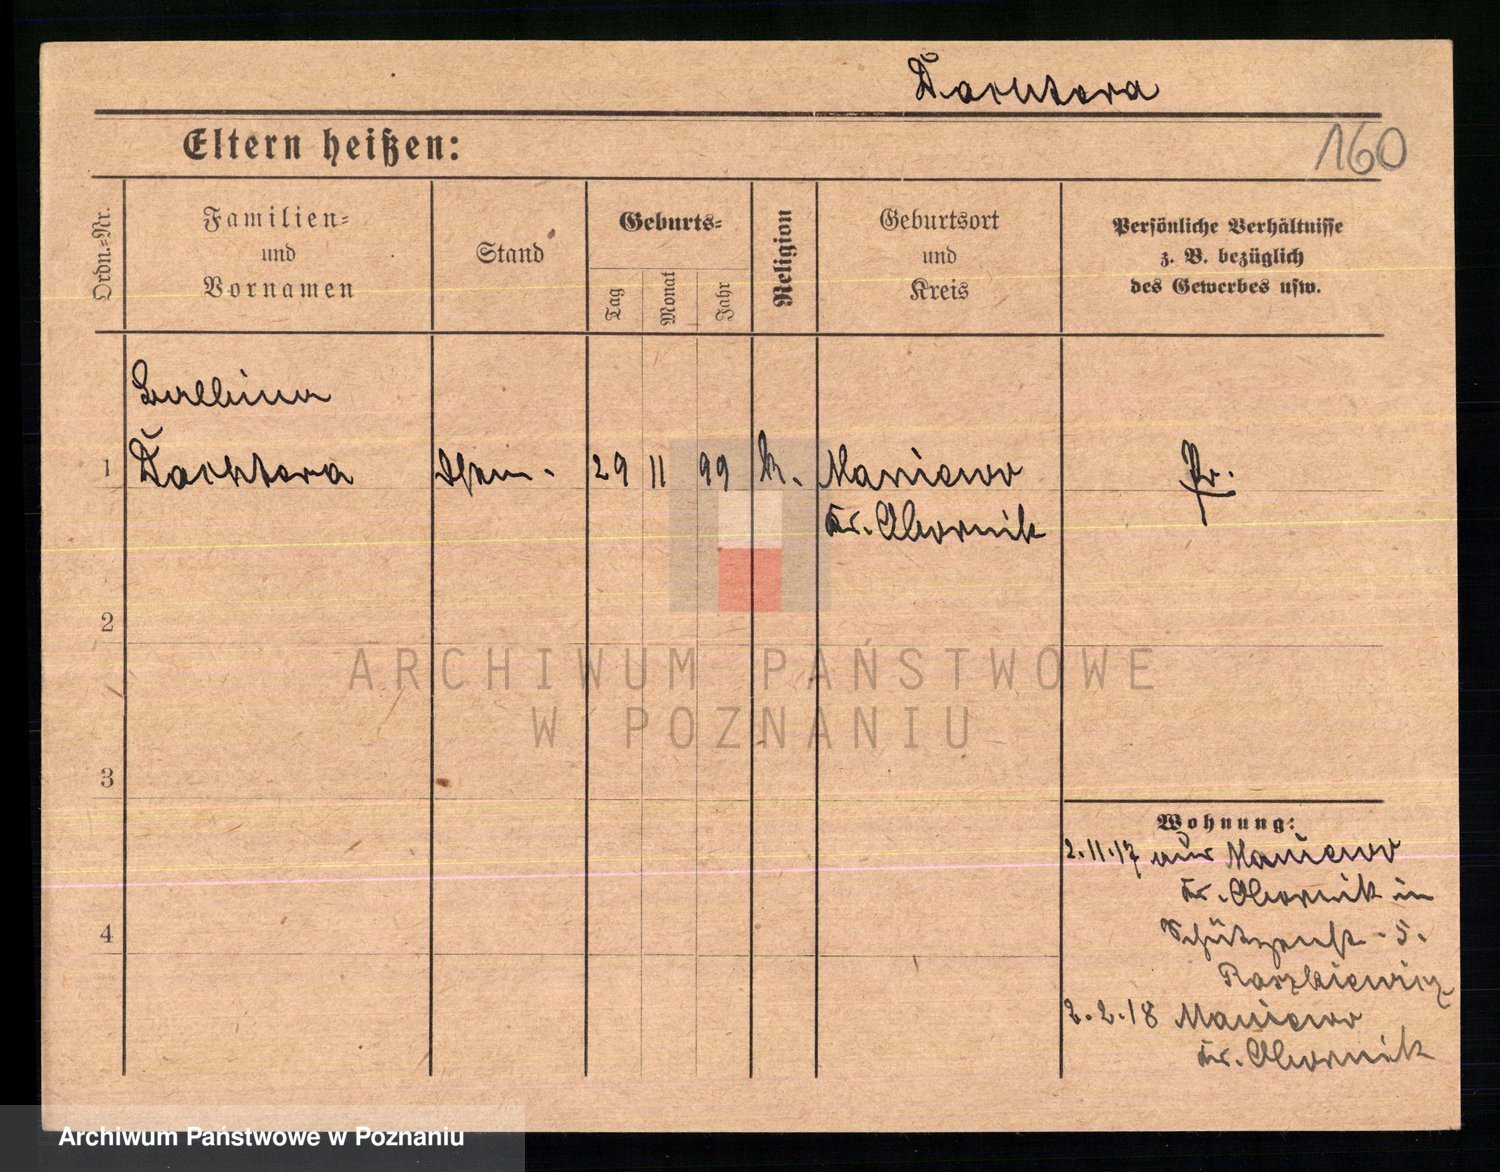 Dachtera
160
Eltern heißen:
Ordn.-Nr.
Familien-
und
Vornamen
Stand
Geburts-
Tag
Monat
Jahr
Religion
Geburtsort
und
Kreis
Persönliche Verhältnisse
z. B. bezüglich
des Gewerbes usw.
Balbina
1 Dachtera 29 11 99 k. Maniewo Pr.
Kr. Obornik
2
3
4
Wohnung:
2.11.17 aus Maniewo
Kr. Obornik in
Schützenstr. 5.
Raszkiewicz
2.2.18 Maniewo
Kr. Obornik
ARCHIWUM PAŃSTWOWE
W POZNANIU
Archiwum Państwowe w Poznaniu